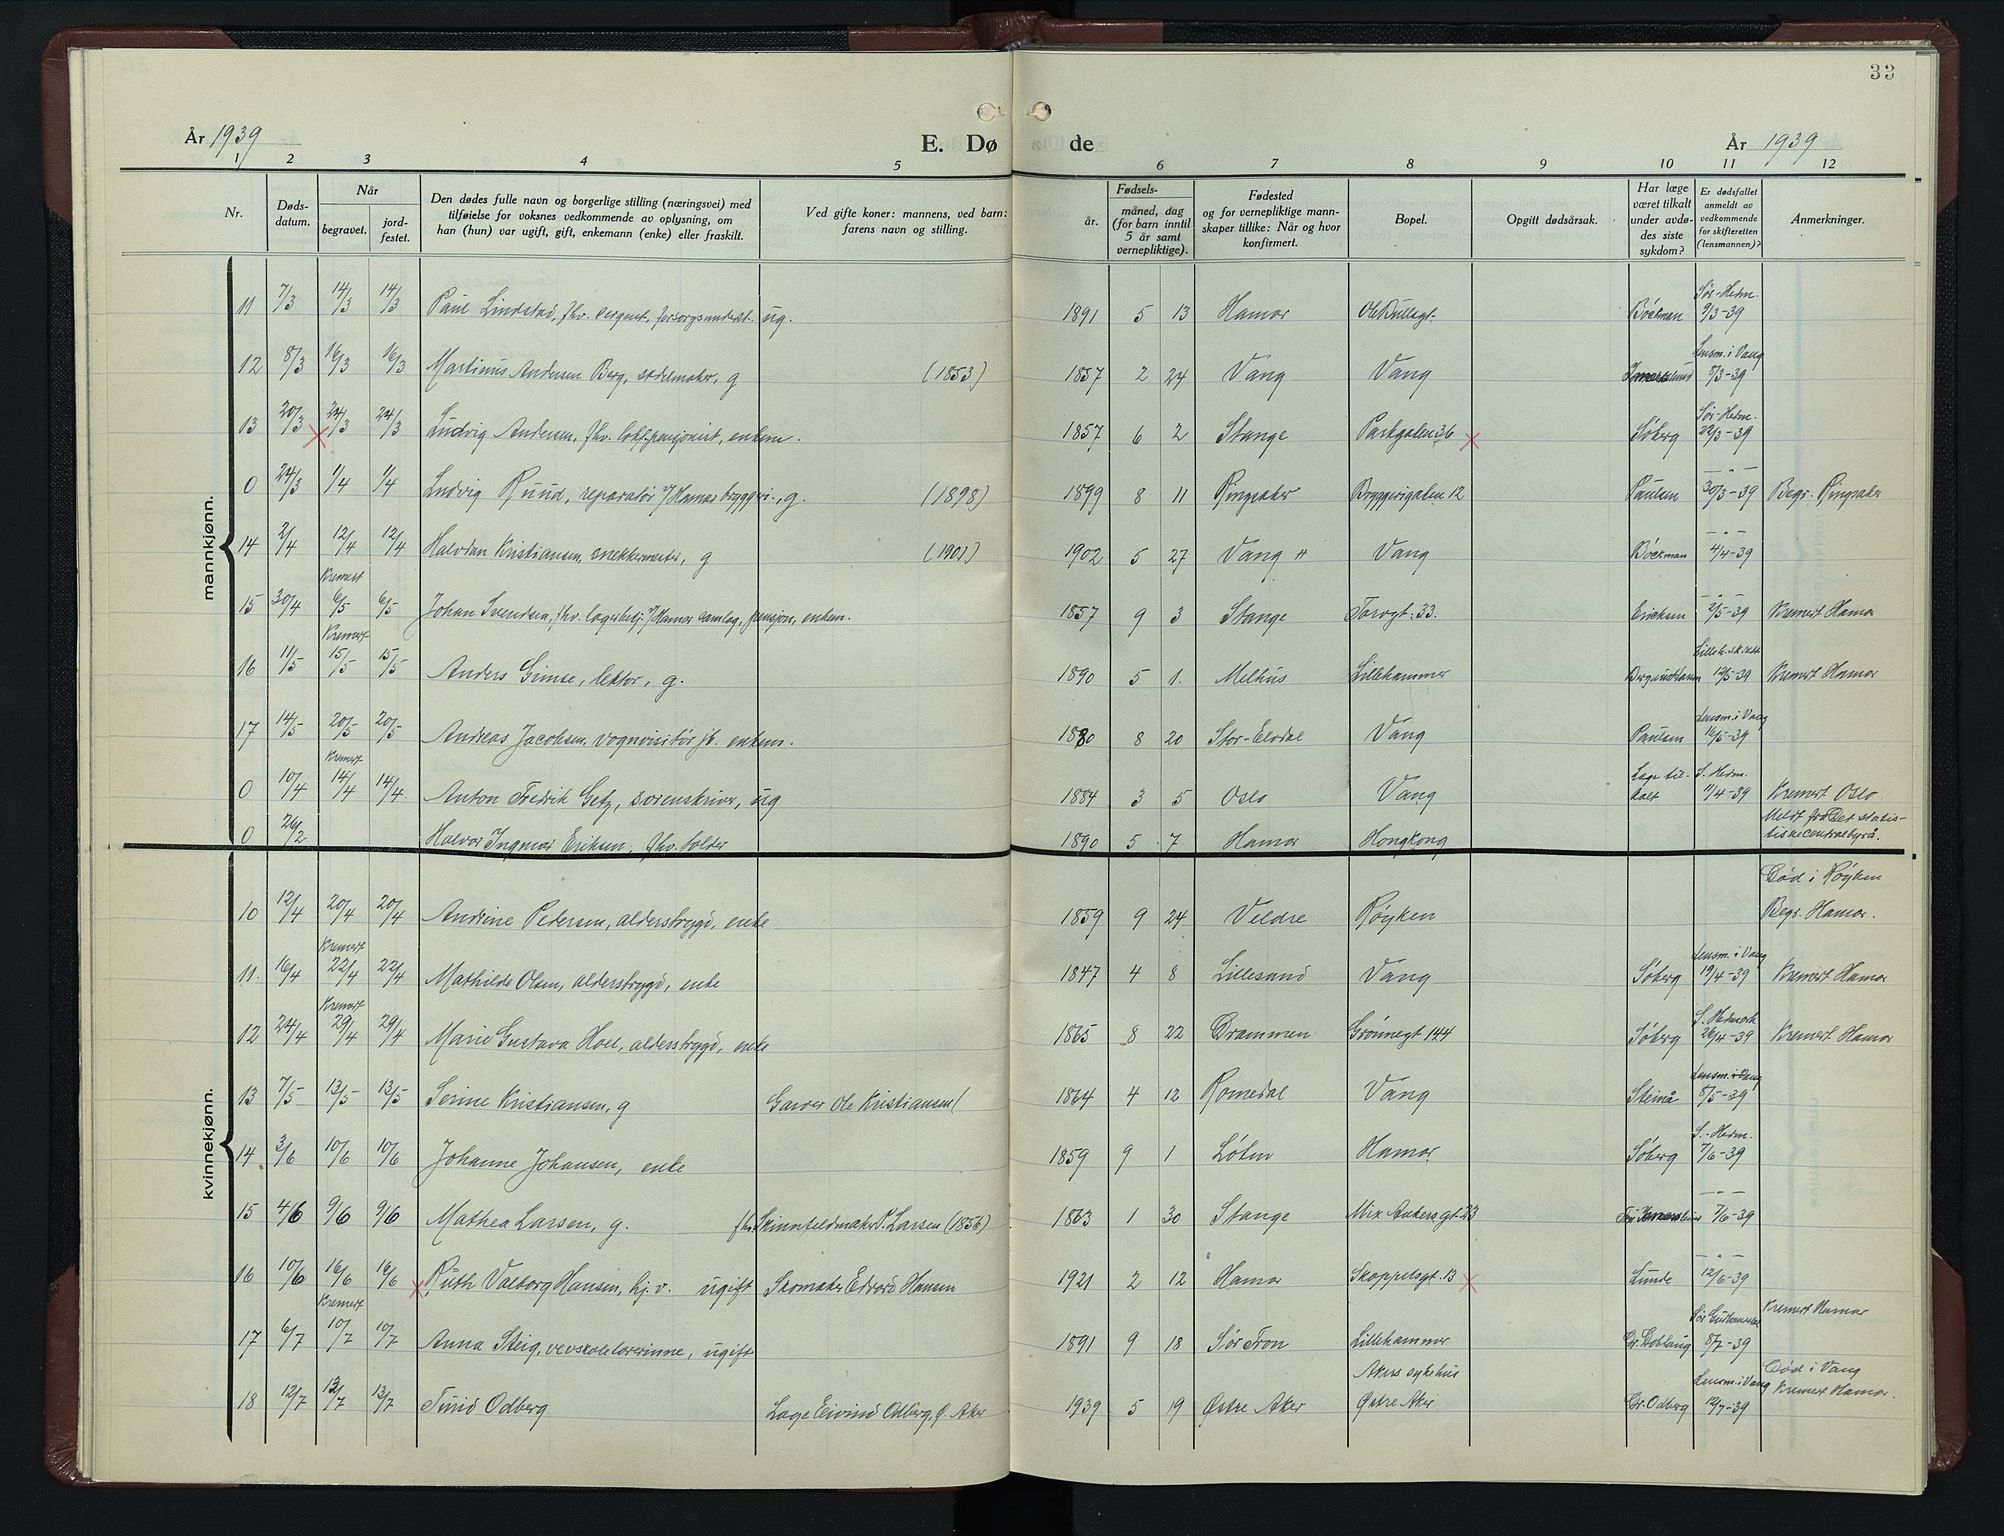 33
År 1939
E. Dø
de
År 1939
1 2 3 4 5 6 7 8 9 10 11 12
Nr.
Døds-
datum.
Når
begravet.
jord-
festet.
Den dødes fulle navn og borgerlige stilling (næringsvei) med
tilføielse for voksnes vedkommende av oplysning, om
han (hun) var ugift, gift, enkemann (enke) eller fraskilt.
Ved gifte koner: mannens, ved barn:
farens navn og stilling.
Fødsels-
år.
måned, dag
(for barn inntil
5 år samt
vernepliktige).
Fødested
og for vernepliktige mann-
skaper tillike: Når og hvor
konfirmert.
Bopel.
Opgitt dødsårsak.
Har læge
været tilkalt
under avdø-
des siste
sykdom?
Er dødsfallet
anmeldt av
vedkommende
for skifteretten
(lensmannen)?
Anmerkninger.
mannkjønn.
11 7/3 14/3 14/3 Paul Lindstad, fhv. sergent, forsorgsunderst. ug. 1891 5 13 Hamar Ole Bullsgt. Böckman Sør-Hedm. 9/3-39
12 8/3 16/3 16/3 Martinus Andersen Berg, sadelmaker, g (1853) 1857 2 24 Vang Vang Lensm. i Vang 8/3-39
13 20/3 24/3 24/3 Ludvig Andersen, fhv. lok.f. pensjonist, enkem. 1857 6 2 Stange Parkgaten 36 Søberg Sør-Hedm. 22/3-39
0 24/3 1/4 1/4 Ludvig Ruud, reparatør v/Hamar bryggeri., g. (1898) 1899 8 11 Ringsaker Bryggerigaten 12 Paulsen — " — 30/3-39 Begr. Ringsaker
14 2/4 12/4 12/4 Halvdan Kristiansen, snekkermester, g (1901) 1902 5 27 Vang Vang Böckman — " — 4/4-39
15 30/4 Kremert 6/5 6/5 Johan Svendsen, fhv. lagerbetj. v/Hamar samlag, pensjon, enkem. 1857 9 3 Stange Torvgt. 33. Ericksen — " — 2/5-39 Kremert Hamar
16 11/5 Kremert 15/5 15/5 Anders Gimse, lektor, g. 1890 5 1. Melhus Lillehammer 12/5-39 Kremert Hamar
17 14/5 20/5 20/5 Andreas Jacobsen, vognvisitør jb. enkem. 1880 8 20 Stor-Elvdal Vang Paulsen Lensm. i Vang 16/5-39
0 10/4 Kremert 14/4 14/4. Anton Fredrik Getz, sorenskriver, ug 1884 3 5 Oslo Vang Læge til-
kalt S. Hedm. 11/4-39 Kremert Oslo
0 26/2 Halvor Ingmar Eriksen, fhv. tolder 1890 5 7 Hamar Hongkong Meldt fra Det statis-
tiske centralbyrå.
kvinnekjønn.
10 12/4 20/4 20/4 Andrine Pedersen, alderstrygd, enke 1859 9 24 Veldre Røyken Død i Røyken
Begr. Hamar.
11. 16/4 Kremert 22/4 22/4 Mathilde Olsen, alderstrygd, enke 1847 4 8 Lillesand Vang Søberg Lensm. i Vang 19/4-39 Kremert Hamar
12 24/4 Kremert 29/4 29/4 Marie Gustava Hoel, alderstrygd, enke 1865 8 22 Drammen Grønnegt 144 Søberg S. Hedmark 26/4-39 Kremert Hamar
13 7/5 13/5 13/5 Serine Kristiansen, g Garver Ole Kristiansen 1864 4 12 Romedal Vang Steinå Lensm. i Vang 8/5-39
14 3/6 10/6 10/6 Johanne Johansen, enke 1859 9 1 Løten Hamar Søberg S.-Hedm. 7/6-39
15 4/6 9/6 9/6 Mathea Larsen, g. fhv. Skinnfeldmaker P. Larsen (1856) 1863 1 30 Stange Mix Ankersgt. 23 — " — 7/6-39
16 10/6 16/6 16/6 Ruth Valborg Hansen, hj. v. ugift Skomaker Edvard Hansen 1921 2 12 Hamar Skappelsgt. 13 Lunde — " — 12/6-39
17 6/7 Kremert 10/7 10/7 Anna Steig, vevskolelærerinne, ugift 1891 9 18 Sør Fron Lillehammer 8/7-39 Kremert Hamar
18 12/7 13/7 13/7 Turid Odberg Læge Eivind Odberg, Ø. Aker 1939 5 19 Østre Aker Akers sykehus
Østre Aker Dr. Odberg Lensm. i Vang 12/7-39 Død i Vang
Kremert Hamar.